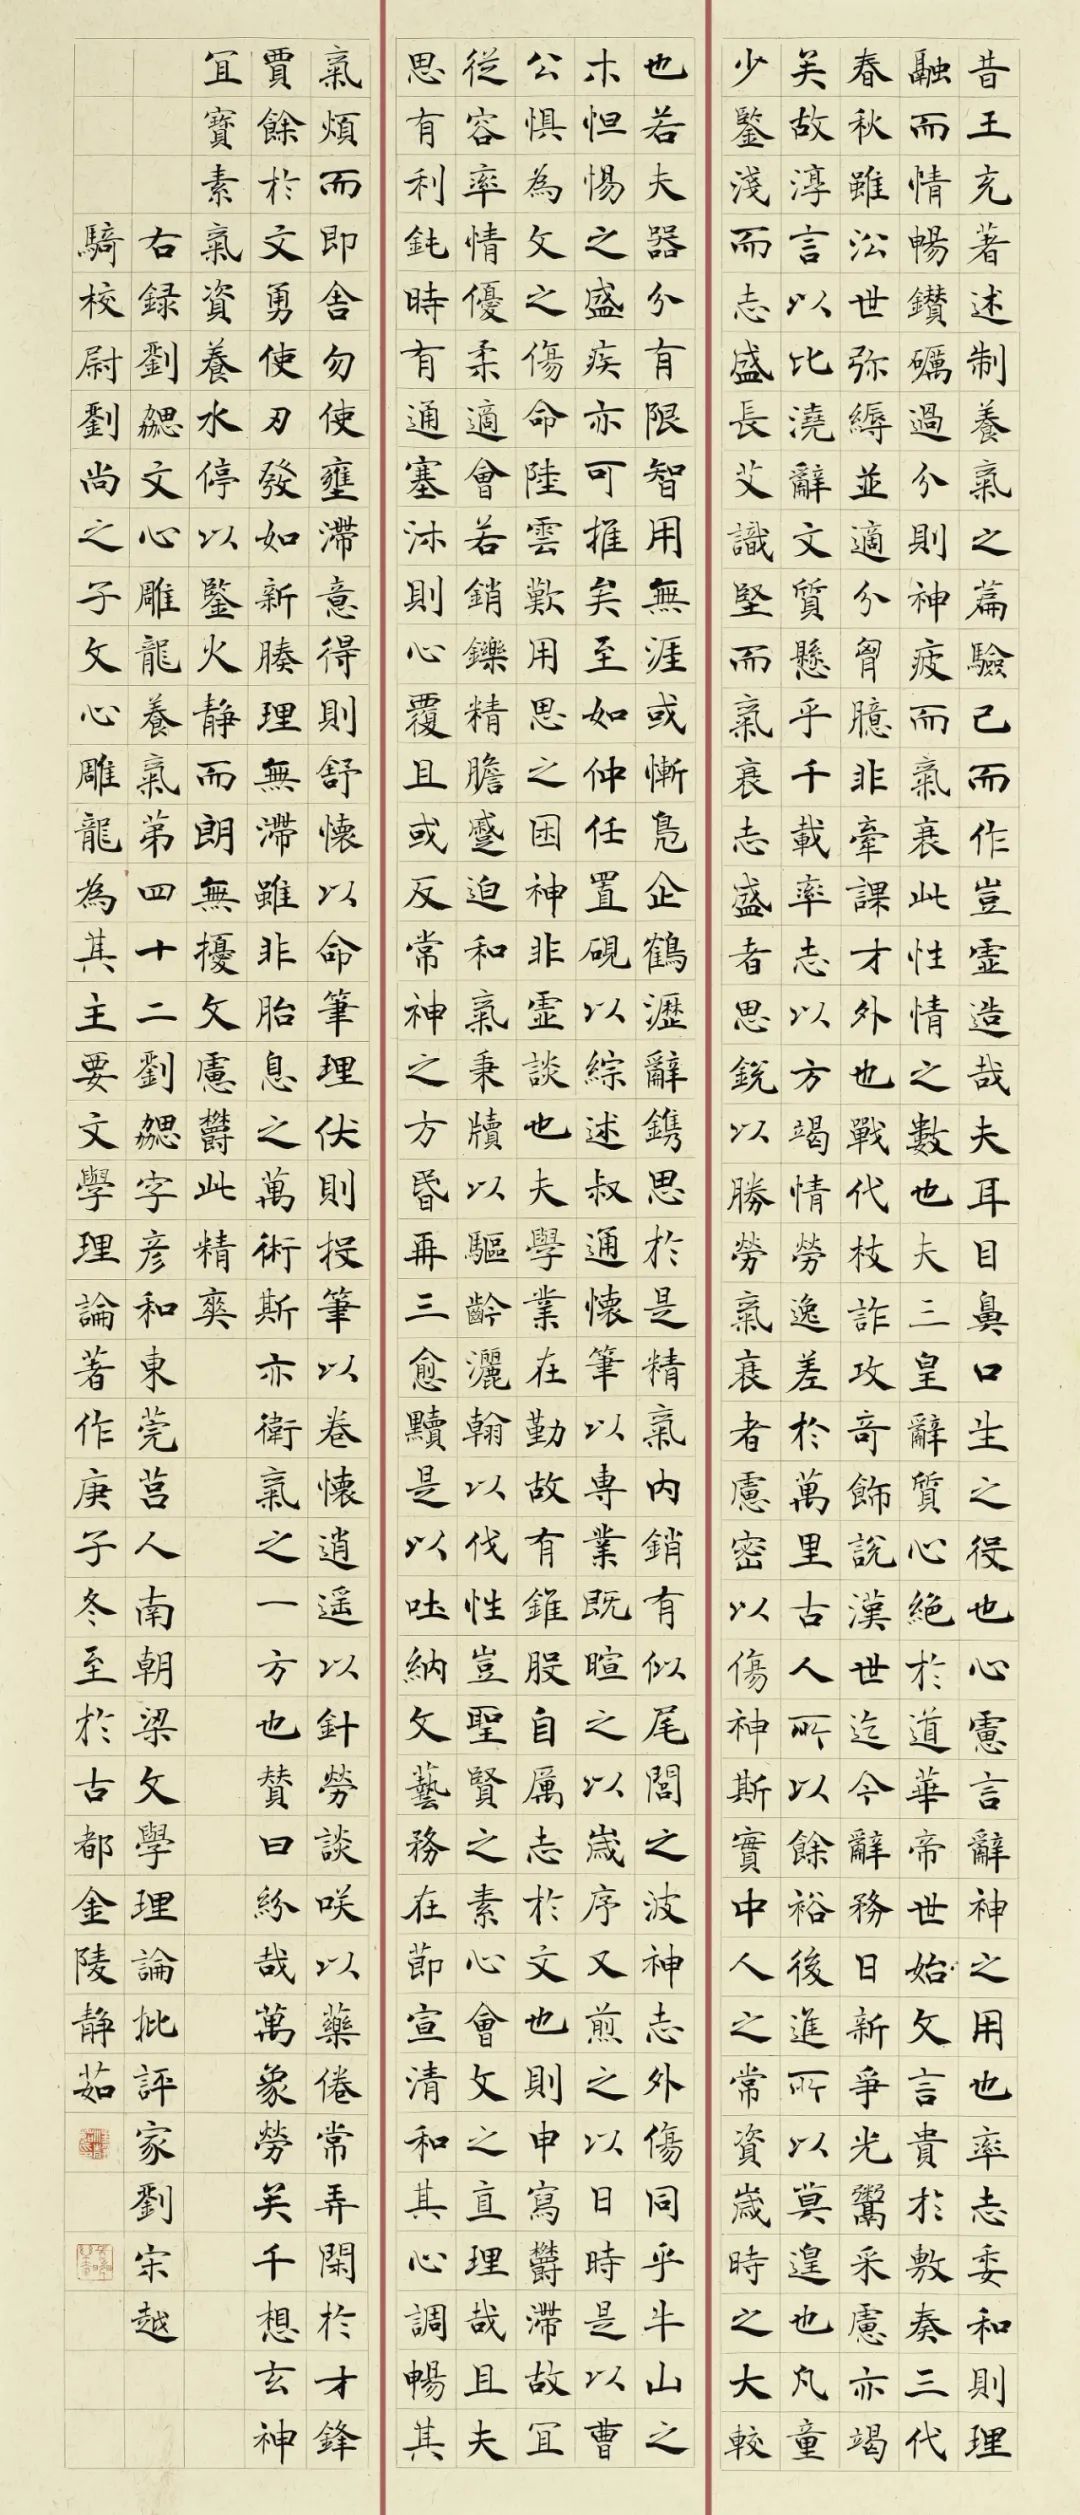 昔王充著述制養氣之篇驗己而作豈虛造哉夫耳目鼻口生之役也心慮言辭神之用也率志委和則理
融而情暢鑽礪過分則神疲而氣衰此性情之數也夫三皇辭質心絕於道華帝世始文言貴於敷奏三代
春秋雖沿世弥縟並適分胷臆非牽課才外也戰代枝詐攻奇飾說漢世迄今辭務日新爭光鬻采慮亦竭
矣故淳言以比澆辭文質懸乎千載率志以方竭情勞逸差於萬里古人所以餘裕後進所以莫遑也凡童
少鑒淺而志盛長艾識堅而氣衰志盛者思銳以勝勞氣衰者慮密以傷神斯實中人之常資歲時之大較
也若夫器分有限智用無涯或慚鳧企鶴瀝辭鐫思於是精氣內銷有似尾閭之波神志外傷同乎牛山之
木怛惕之盛疾亦可推矣至如仲任置硯以綜述叔通懷筆以專業既暄之以歲序又煎之以日時是以曹
公懼為文之傷命陸雲歎用思之困神非虛談也夫學業在勤故有錐股自厲志於文也則申寫鬱滯故宜
從容率情優柔適會若銷鑠精膽蹙迫和氣秉牘以驅齡灑翰以伐性豈聖賢之素心會文之直理哉且夫
思有利鈍時有通塞沐則心覆且或反常神之方昏再三愈黷是以吐納文藝務在節宣清和其心調暢其
氣煩而即舍勿使壅滯意得則舒懷以命筆理伏則投筆以卷懷逍遙以針勞談咲以藥倦常弄閑於才鋒
賈餘於文勇使刃發如新腠理無滯雖非胎息之萬術斯亦衛氣之一方也贊曰紛哉萬象勞矣千想玄神
宜寶素氣資養水停以鑒火靜而朗無擾文慮鬱此精爽
右録劉勰文心雕龍養氣第四十二劉勰字彥和東莞莒人南朝梁文學理論批評家劉宋越
騎校尉劉尚之子文心雕龍為其主要文學理論著作庚子冬至於古都金陵靜茹